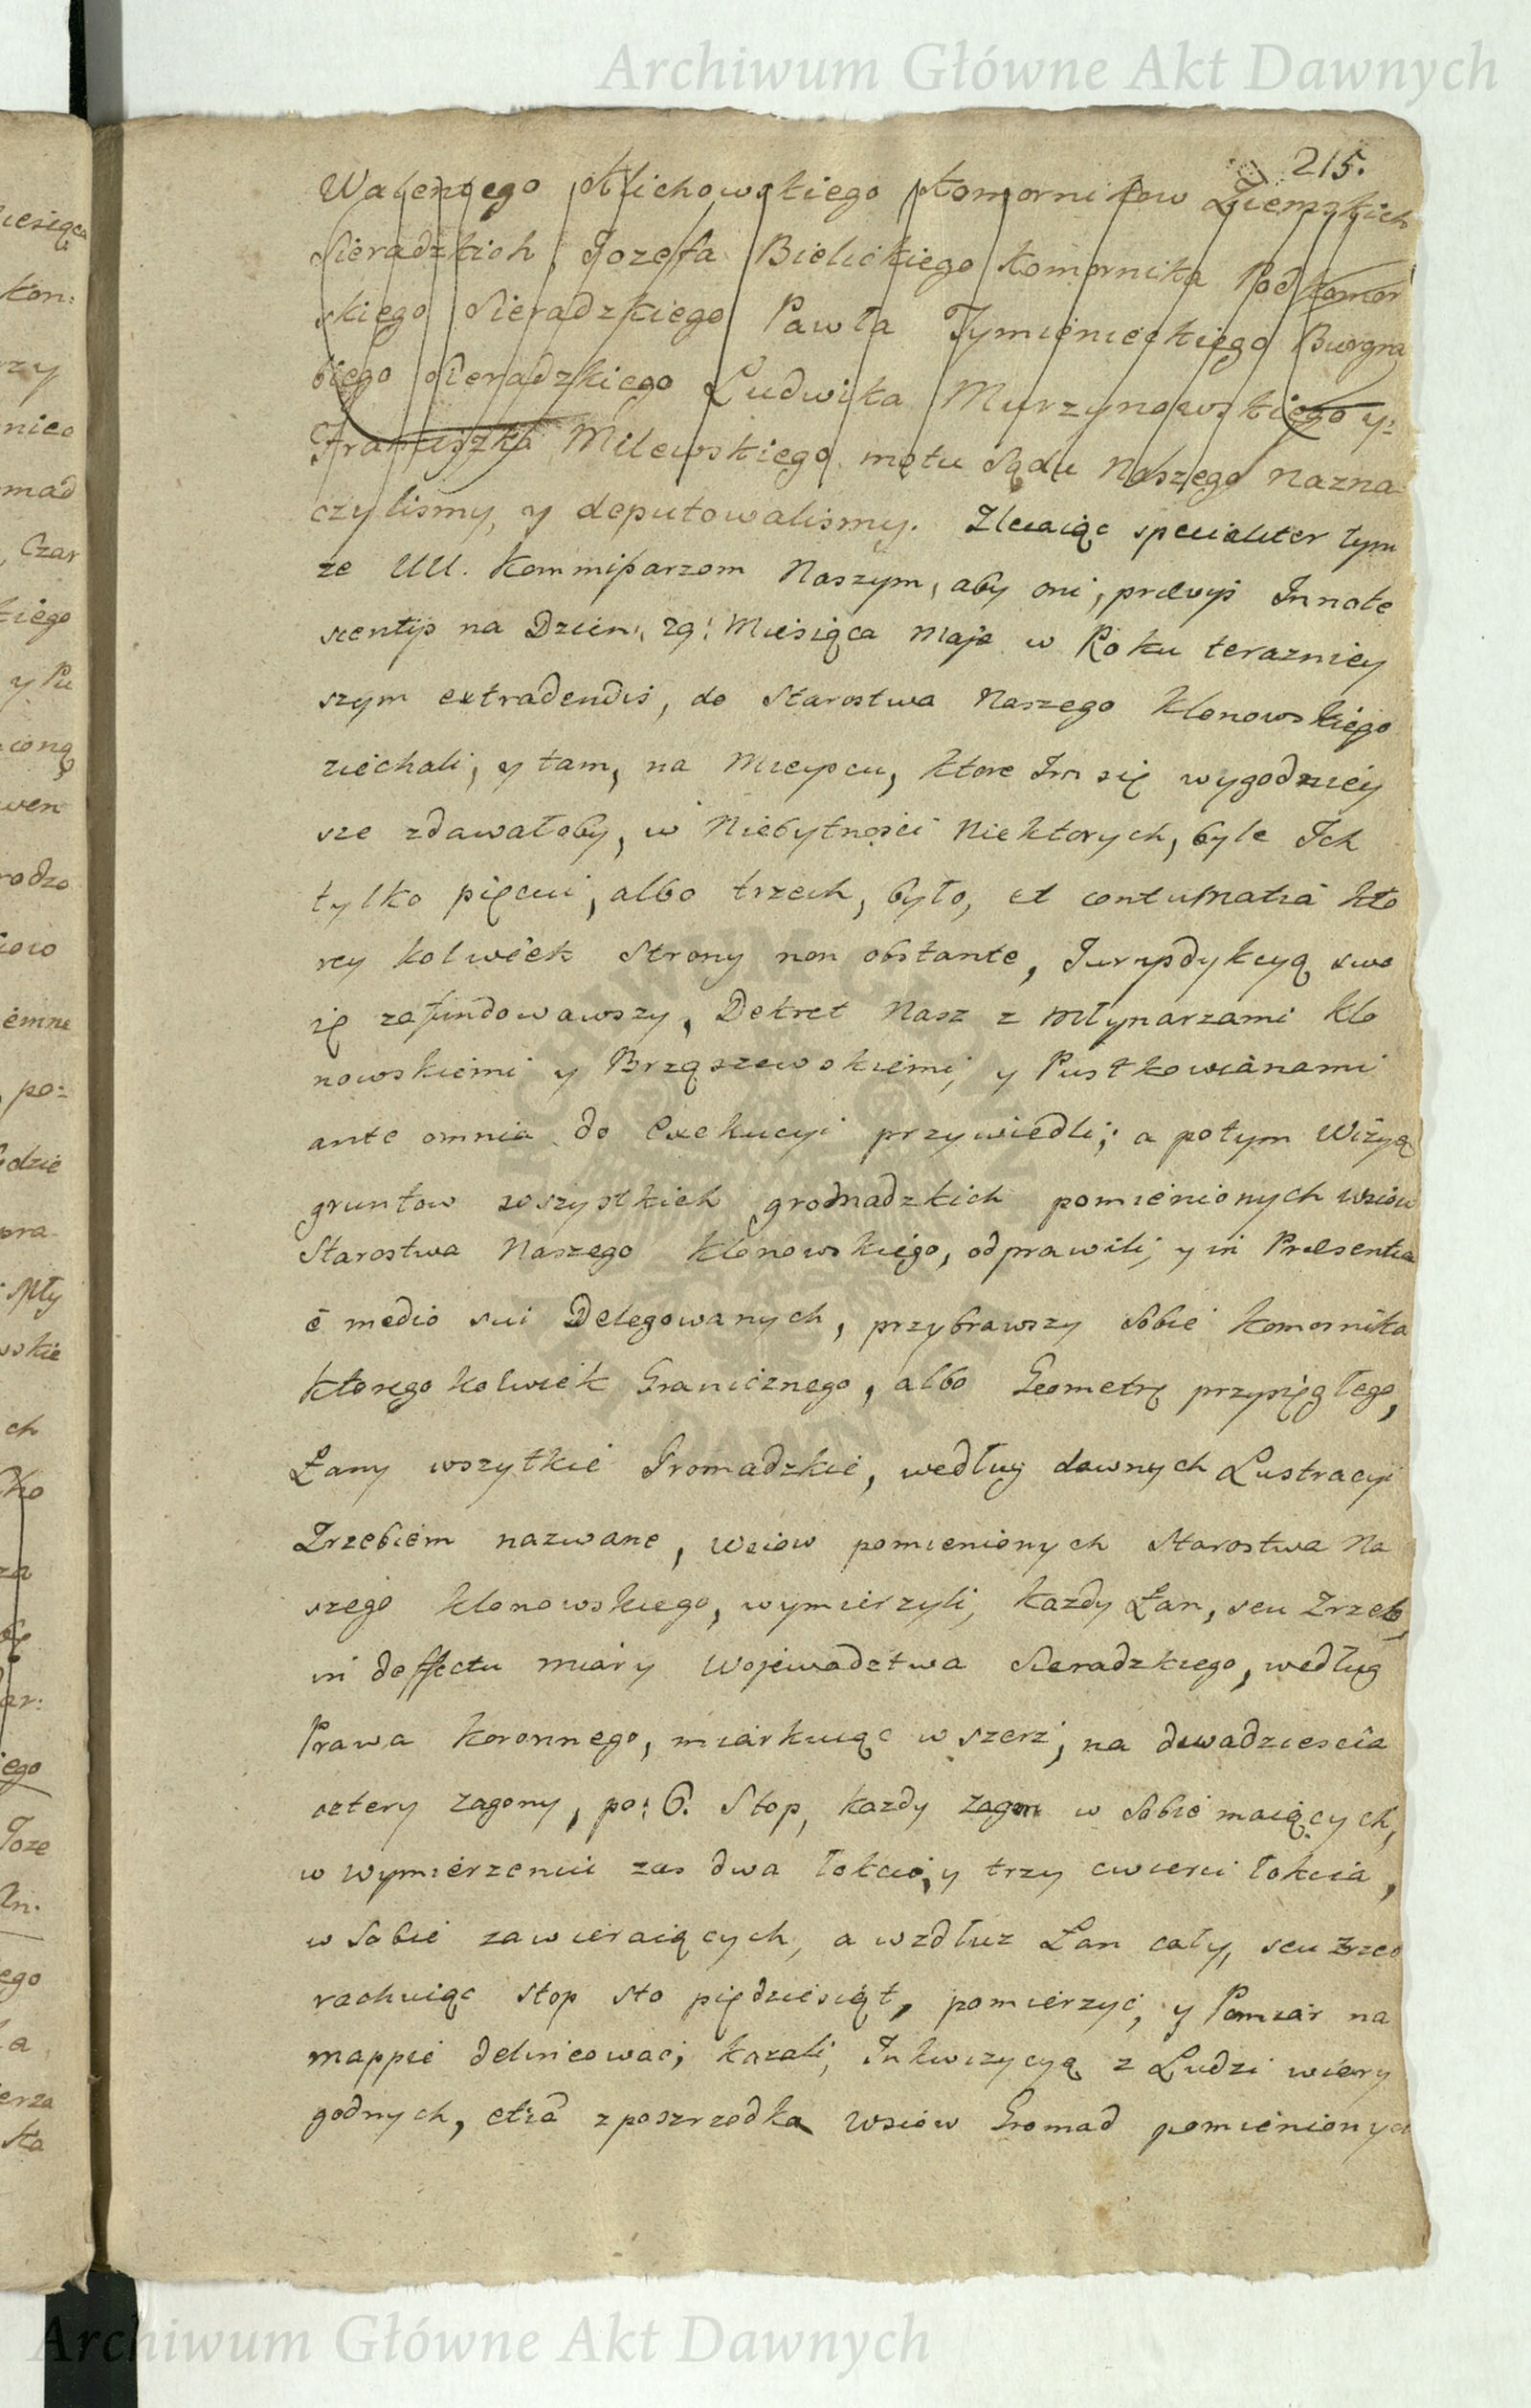 Archiwum Główne Akt Dawnych
215.
Walentego Michowskiego Komornikow Ziemskich
Sieradzkich, Jozefa Bielickiego Komornika Podkomor
skiego Sieradzkiego Pawła Tymienieckiego Burgra
biego Sieradzkiego Ludwika Murzynowskiego y:
Franciszka Milewskiego motu Sądu Naszego nazna
czylismy, y deputowalismy. Zlecaiąc specialiter tym
ze UU. Kommißarzom Naszym, aby oni, prævijs Innote
scentijs na Dzien, 29: Miesiąca Maja w Roku terazniey
szym extradendis, do Starostwa Naszego Klonowskiego
ziechali, y tam, na Mieyscu, ktore Im się wygodniey
sze zdawałoby, w Niebytności Niektorych, byle Ich
tylko pięciu, albo trzech, było, et contumatia kto
rey kolwiek Strony non obstante, Juryzdykcyą swo
ię zafundowawszy, Dekret Nasz z Młynarzami Klo
nowskiemi y Brząszewskiemi, y Pustkowianami
ante omnia do Exekucyi przywiedli; a potym Wizyą
gruntow wszystkich gromadzkich pomienionych wsiow
Starostwa Naszego Klonowskiego, odprawili, y in Præsentia
é medio sui Delegowanych, przybrawszy sobie Komornika
ktorego kolwiek Granicznego, albo Geometrę przysięgłego,
Łany wszytkie Gromadzkie, według dawnych Lustracyi
Zrzebiem nazwane, wsiow pomienionych Starostwa Na
szego Klonowskiego, wymierzyli, każdy Łan, seu Zrzeb,
in deffectu miary Wojewodztwa Sieradzkiego, według
Prawa Koronnego, miarkuiąc w szerz, na dwadziescia
cztery zagony, po: 6. Stop, kazdy zagon w sobie maiących,
w wymierzeniu zas dwa łokcie, y trzy cwierci łokcia,
w sobie zawieraiących, a wzdłuz Łan cały, seu Zrzeb
rachuiąc stop sto piędziesiąt, pomierzyć, y Pomiar na
mappie delineować, kazali, Inkwizycyą z Ludzi wiary
godnych, etia zposzrzodka wsiow Gromad pomienionych
Archiwum Główne Akt Dawnych